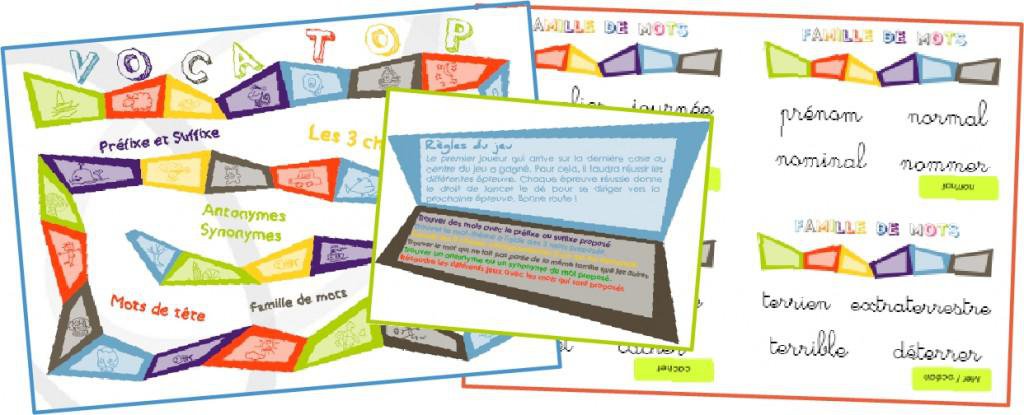 VOCA TOP
Préfixe et Suffixe
Les 3 ch
Antonymes
Synonymes
Mots de tête
Famille de mots
Règles du jeu
Le premier joueur qui arrive sur la dernière case au
centre du jeu a gagné. Pour cela, il faudra réussir les
différentes épreuves. Chaque épreuve réussie donne
le droit de lancer le dé pour se diriger vers la
prochaine épreuve. Bonne route !
Trouver des mots avec le préfixe ou suffixe proposé
Trouver le mot qui ne fait pas partie de la même famille que les autres
Trouver un antonyme ou un synonyme du mot proposé.
Résoudre les différents jeux avec les mots qui sont proposés
FAMILLE DE MOTS
journée
cacher
cachet
FAMILLE DE MOTS
prénom normal
nominal nommer
normal
FAMILLE DE MOTS
terrien extraterrestre
terrible déterrer